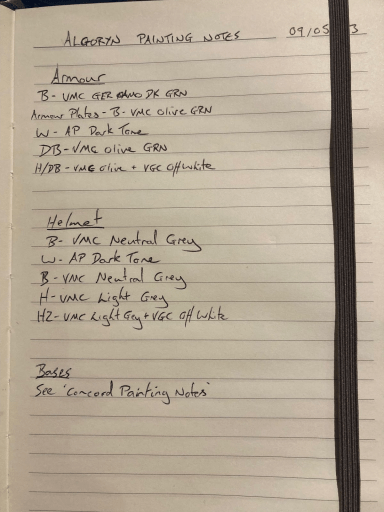 ALGORYN PAINTING NOTES 09/05 3
Armour
B- VMC GER CAMO DK GRN
Armour Plates - B- VMC Olive GRN
W- AP Dark Tone
DB- VMC Olive GRN
H/DB - VMC Olive + VGC Off White
Helmet
B- VMC Neutral Grey
W- AP Dark Tone
B- VMC Neutral Grey
H- VMC Light Grey
H2- VMC Light Grey + VGC Off White
Bases
See 'Concord Painting Notes'